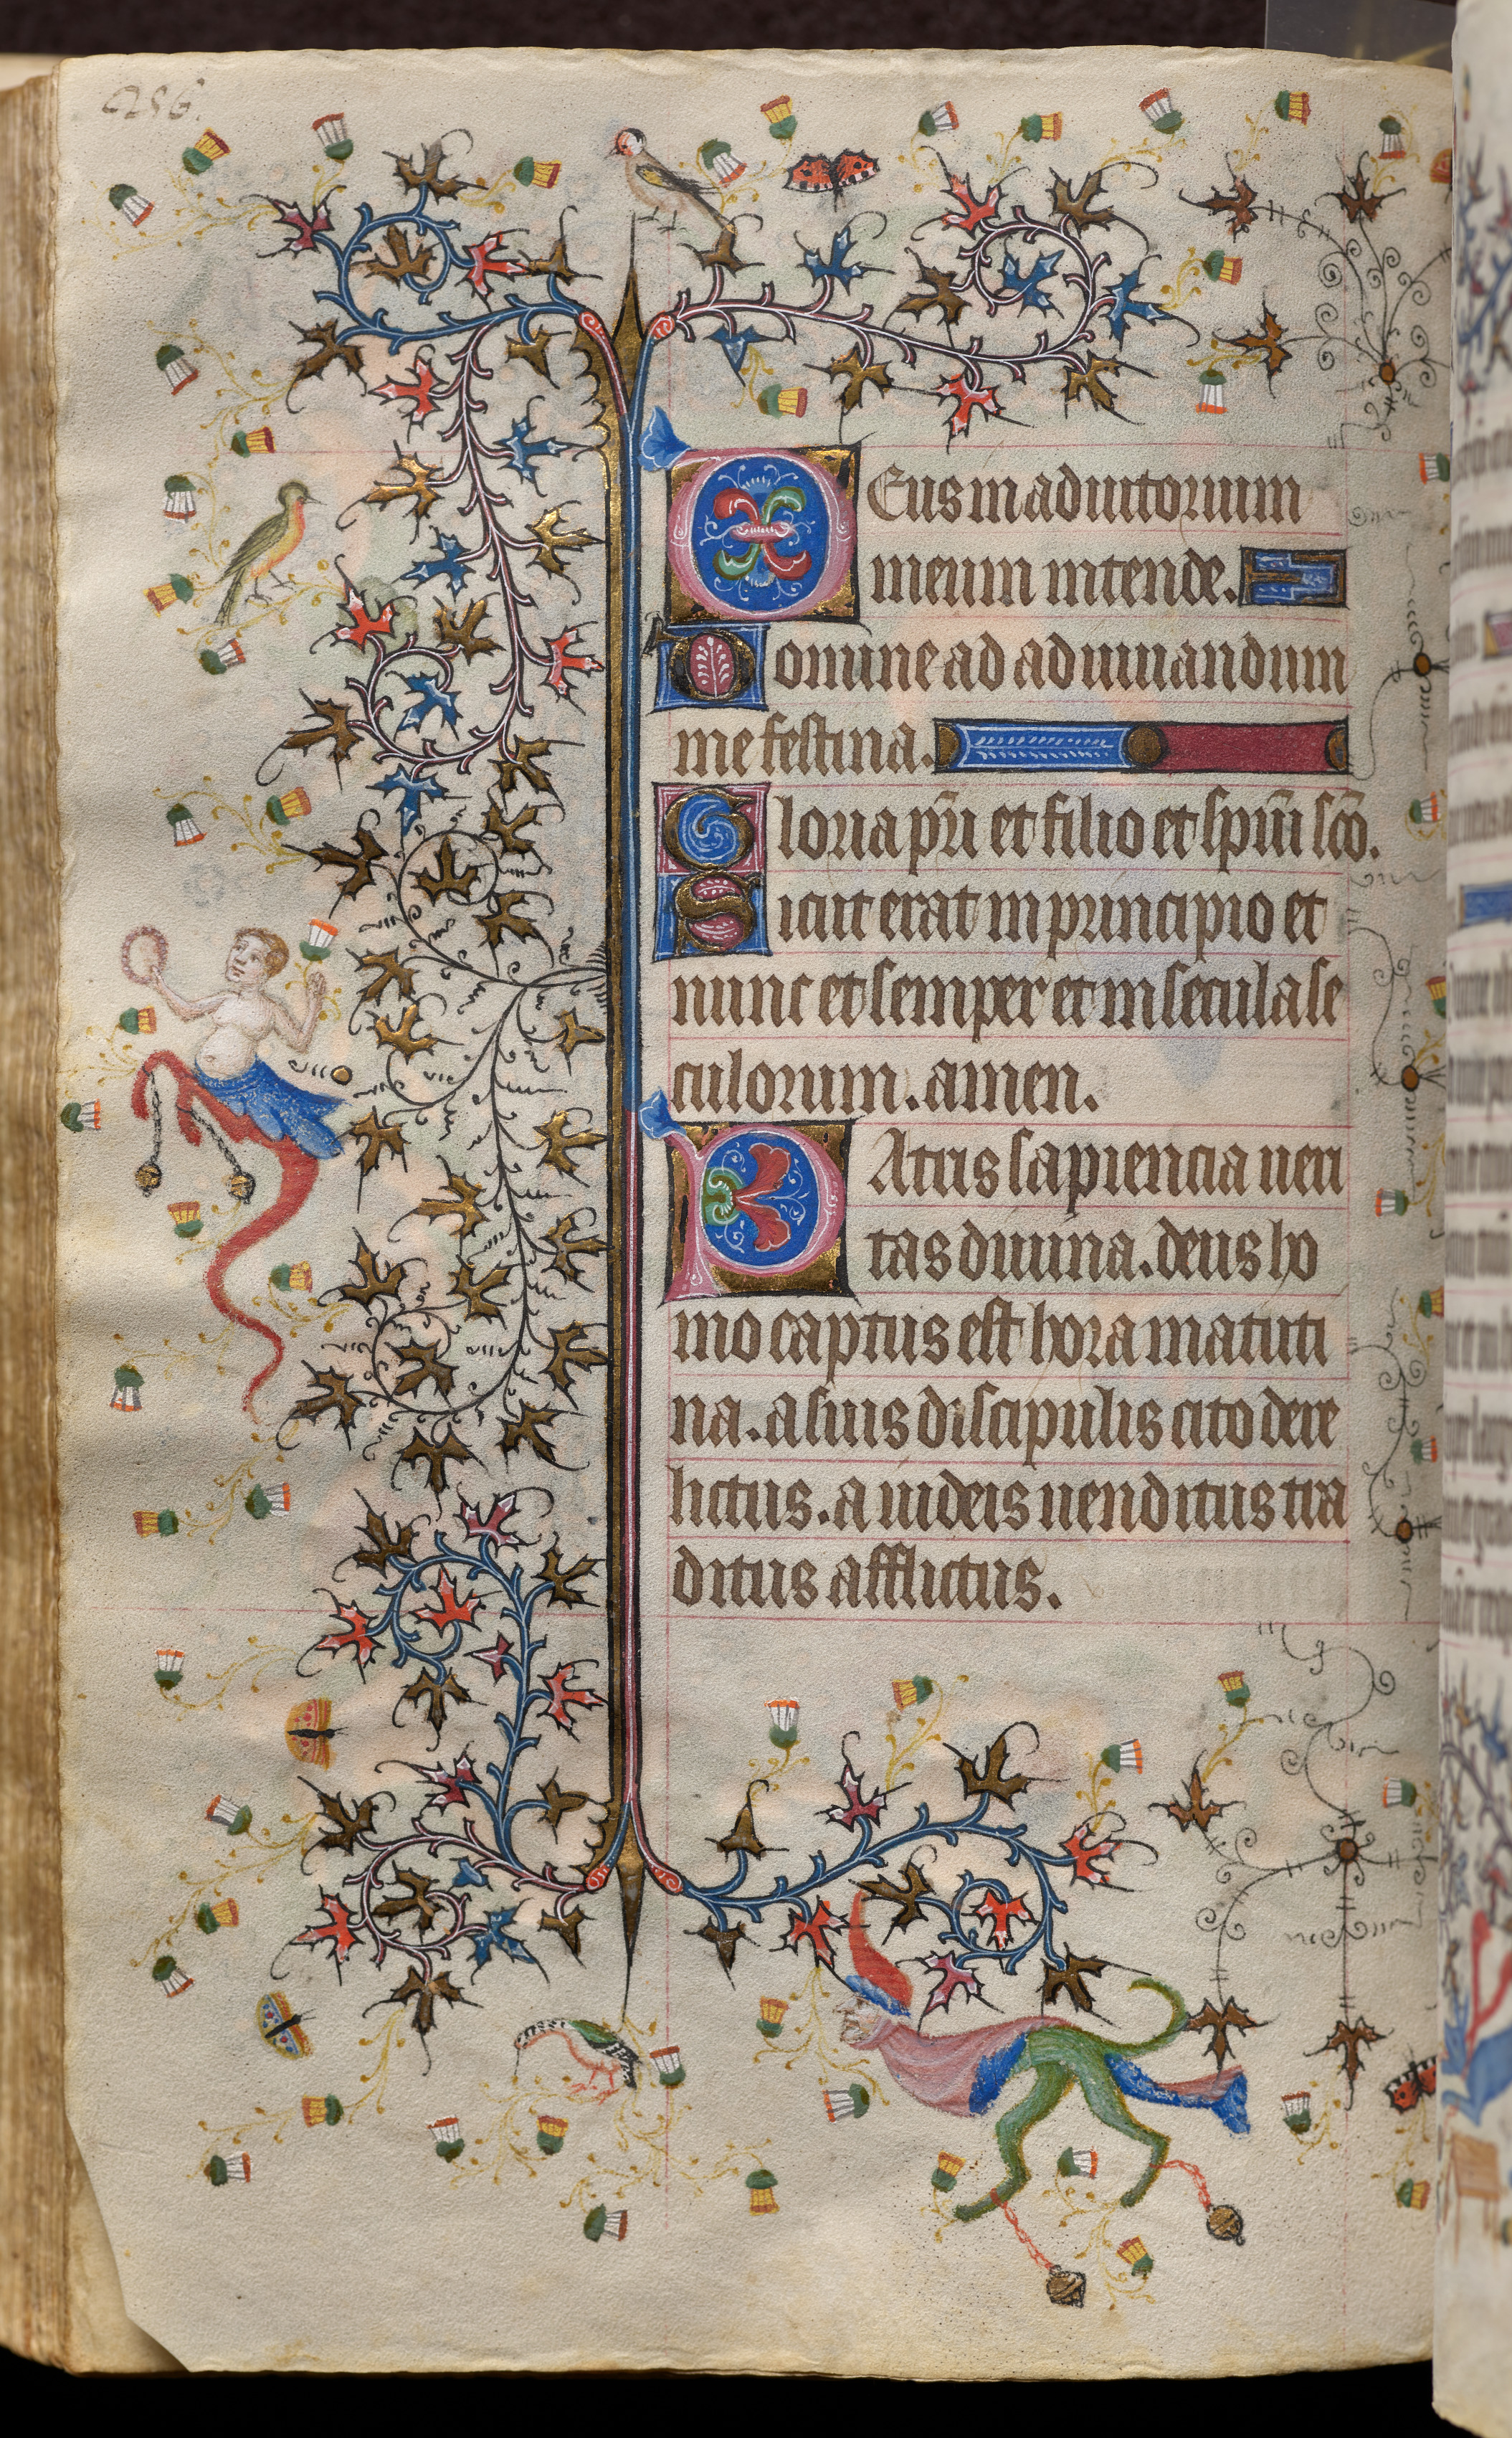 256.
Deus in adiutorium
meum intende.
Domine ad adiuuandum
me festina.
Gloria pr̄i et filio et spūi scō.
Sicut erat in principio et
nunc et semper et in secula se
culorum. amen.
Patris sapiencia ueri
tas diuina. deus ho
mo captus est hora matuti
na. a suis discipulis cito dere
lictus. a iudeis uenditus tra
ditus afflictus.